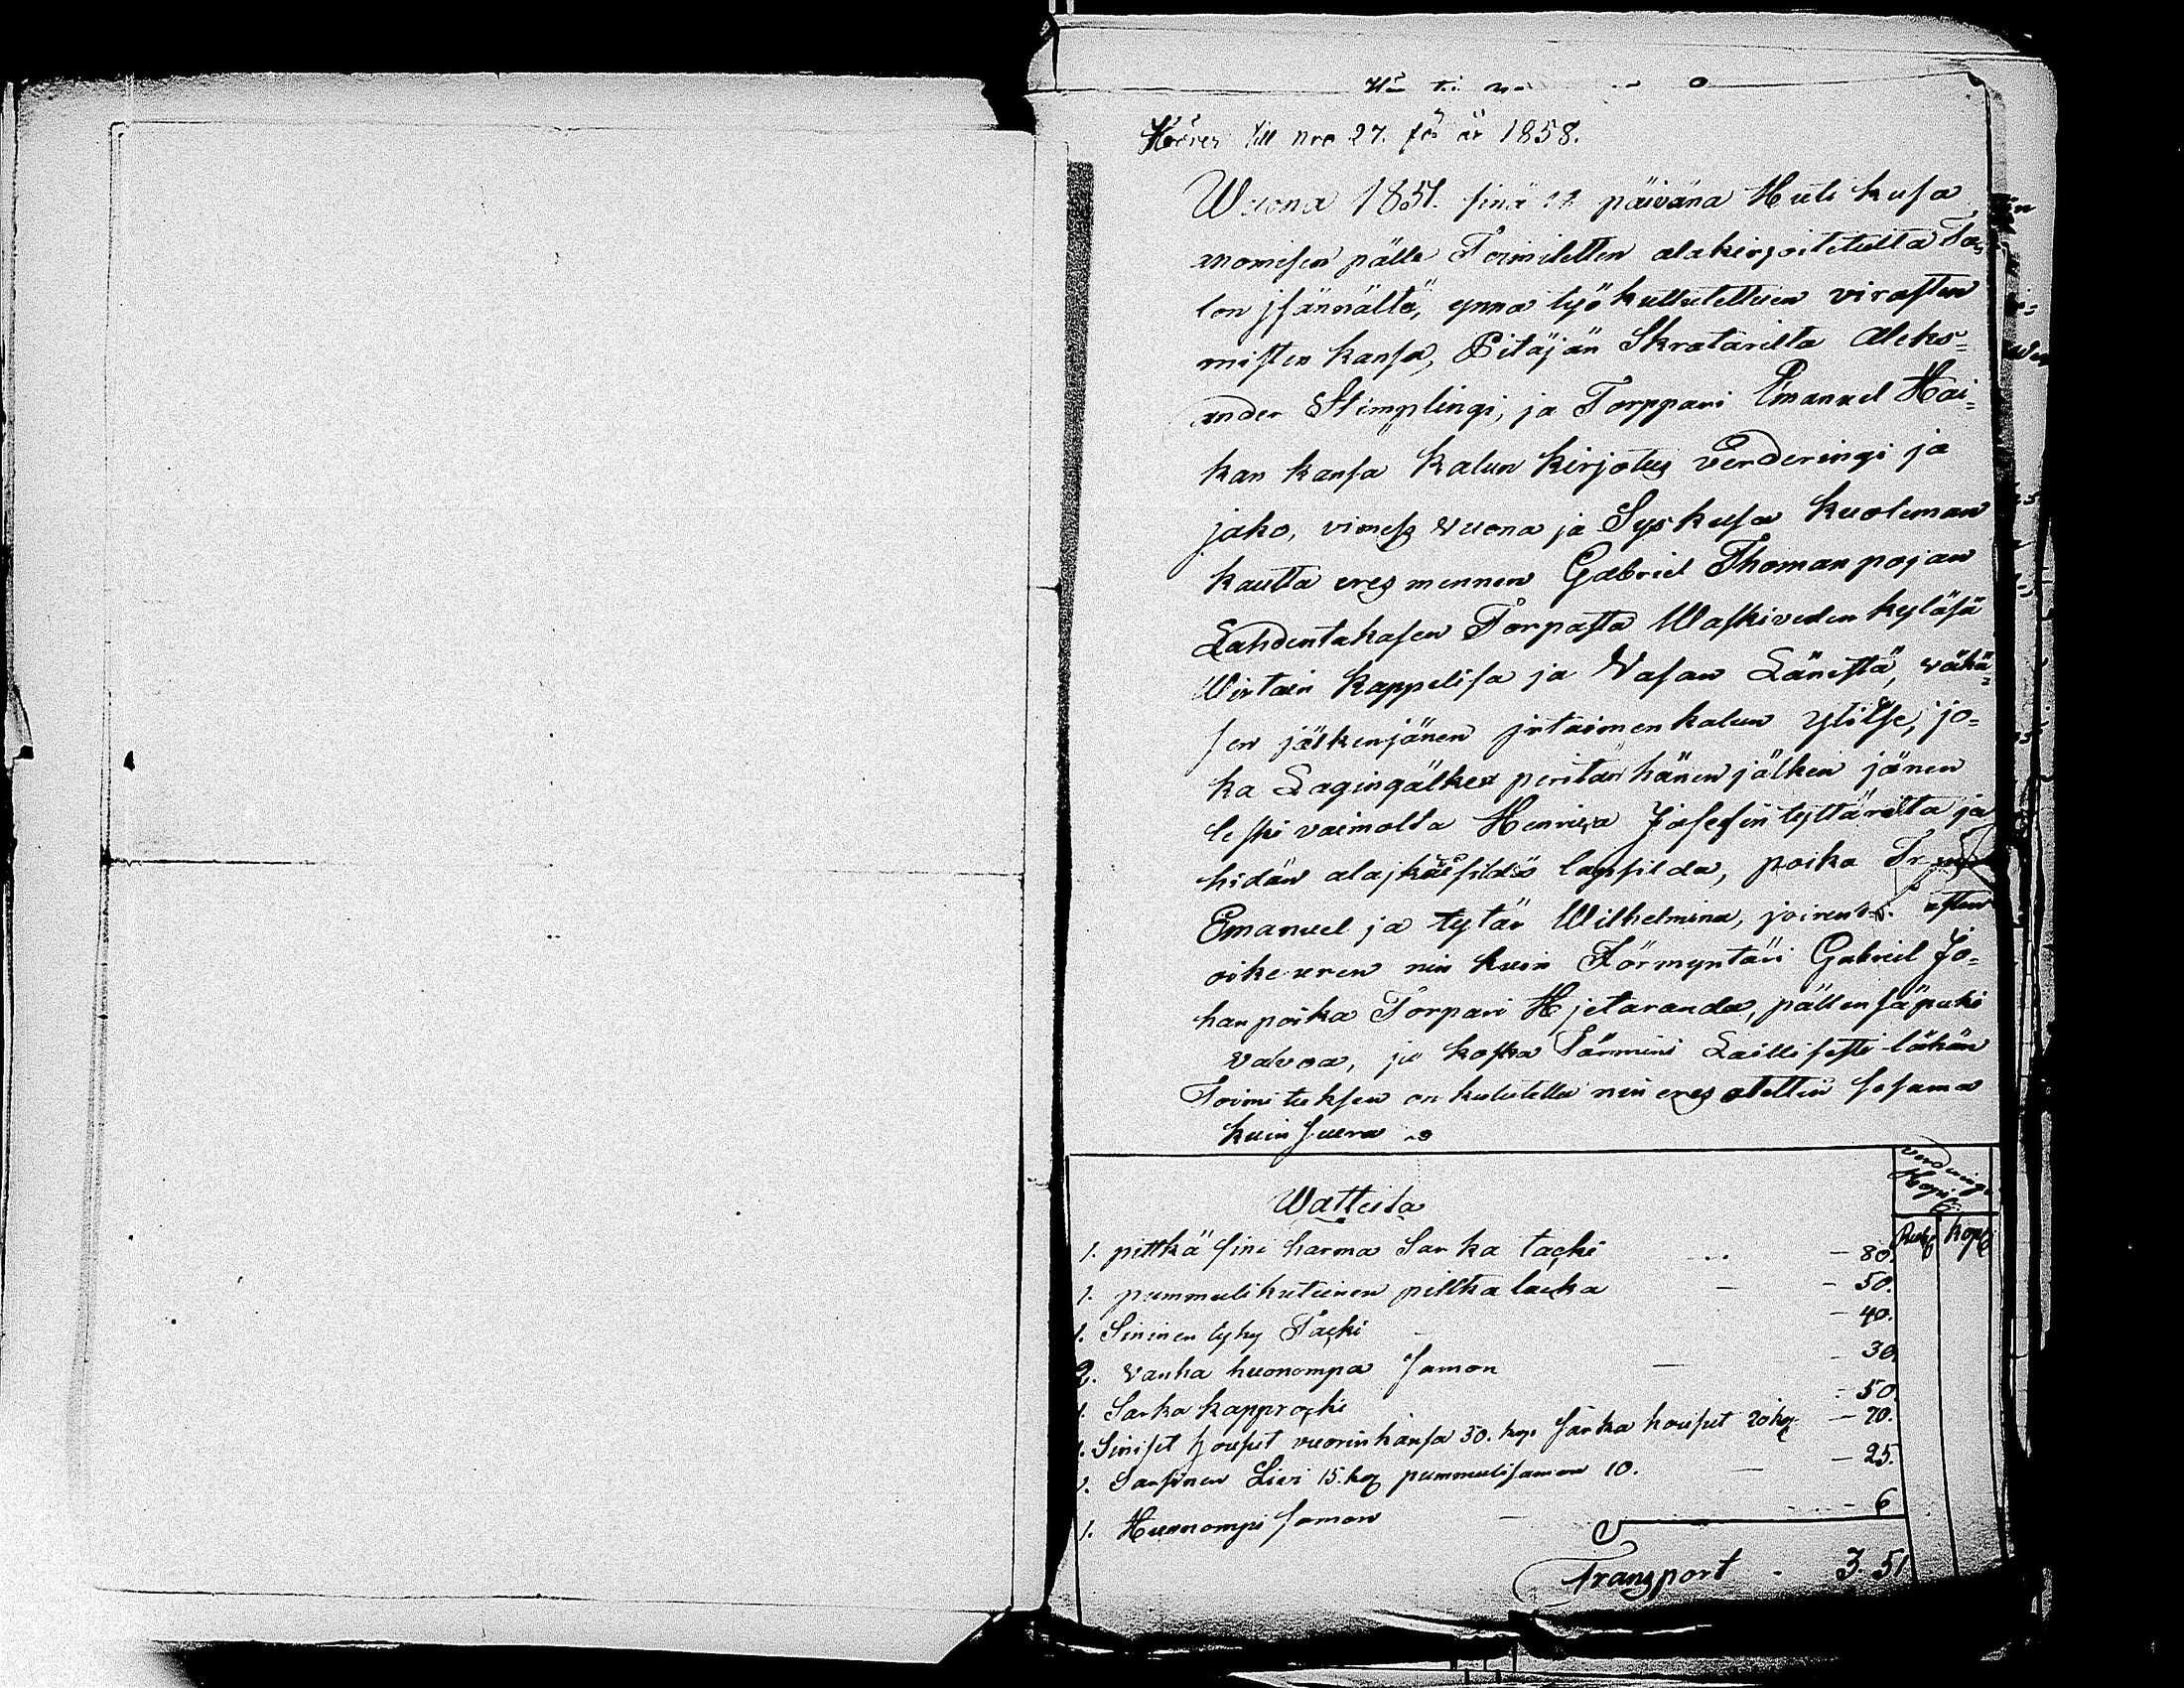 Hörer till nro 27. för år 1858.
Wuona 1851. sinä 22 päivänä Huti kusa
anomisen pälle Toimitetten alakirjoitetulta Ta-
lon jsännältä, ynna työ kuttutettuen virasten
misten kansa, Pitäjän Skratarilta Aleks=
ander Stimplingi, ja Torppari Emanuel Hai=
kan kansa Kalun kirjotus Verderingi ja
jako, vimess vuona ja Syskusa kuoleman
kautta eres mennen Gabriel Thoman pojan
Lahdentakasen Torpasta Waskiveden kyläsä
Wirtain Kappelisa ja Vasan Länistä, vähä=
sen jälkenjänen jrtaimen kalun ylitse, jo=
ka Lagingälkea peritän hänen jälken jänen
leski vaimolta Henrica Josefin tyttärelta ja
hidän alajkäsildä lapsilda, poika
Emanuel ja tytär Wilhelmina, joirens. asten
oikeuren nin kuin Förmyntäri Gabriel Jo=
han poika Torpari Hjetaranda, pällensäpuhi
valvoa, ja koska Särmini Laillisesti tähän
Toimituksen on kututettu nin eres otettin sesama
kuin seura
Verderingi
Hopia
Watteita Rubl kop
1. pittkä sini harma Sarka tacki - 80.
1. pummulikutuinen pittka takka - 50.
1. Sininen lyhy Tacki - 40.
2. vanha huonompa Samon - 30.
1. Sarka kapprocki - 50.
1. Siniset housut vuorinkansa 30. kop Sarka housut 20 kop - 70.
1. Sarsinen Livi 15. kop pummulisamon 10. - 25.
1. Huonompi samon - 6
Transport - 3. 51